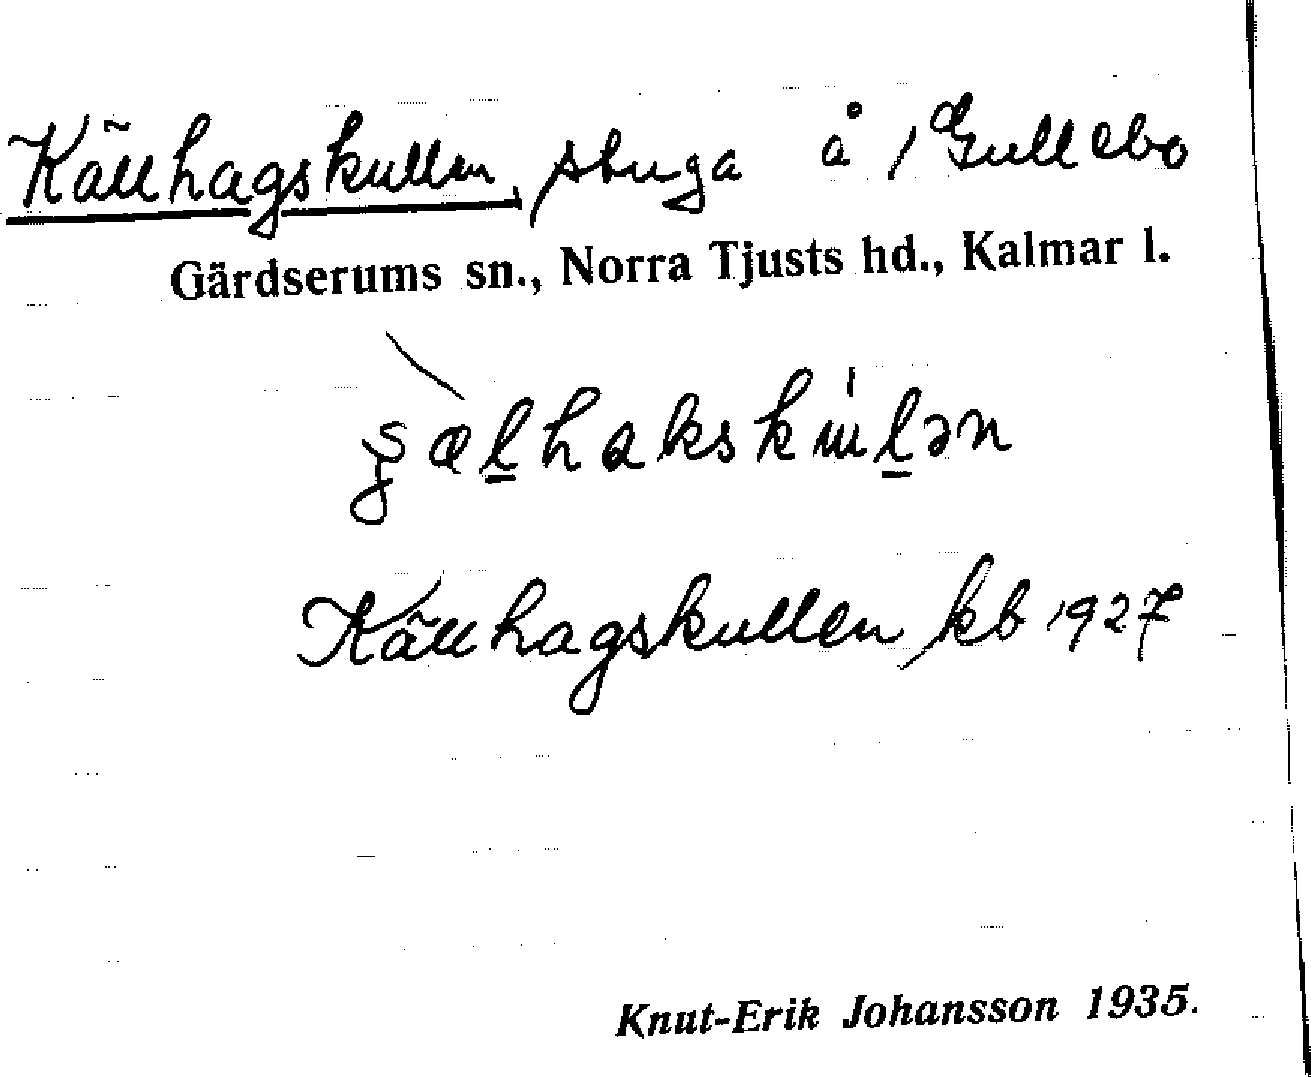 Källhagskullen, stuga å Gullebo
Gärdserums sn., Norra Tjusts hd., Kalmar l.
Källhagskullen kb 1927
Knut-Erik Johansson 1935.